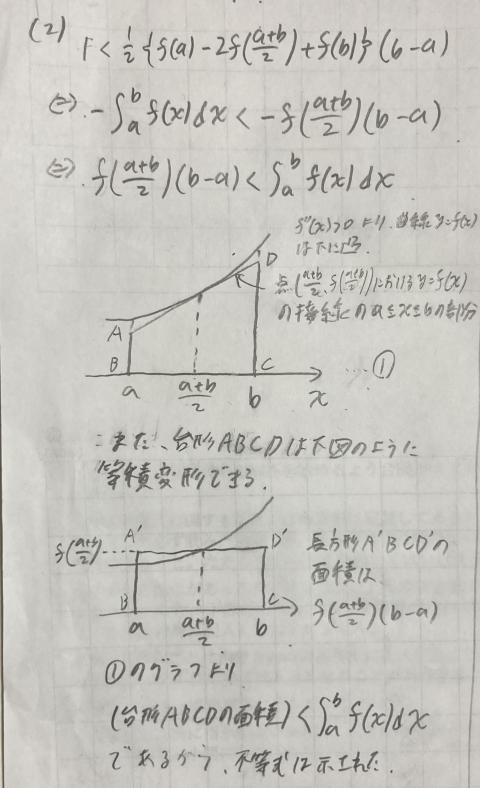 (2)
F < 1/2 {f(a) - 2f((a+b)/2) + f(b)} (b-a)
⇔ -∫_a^b f(x)dx < -f((a+b)/2)(b-a)
⇔ f((a+b)/2)(b-a) < ∫_a^b f(x)dx
f''(x)>0 より、曲線y=f(x)
は下に凸.
点((a+b)/2, f((a+b)/2))におけるy=f(x)
の接線のa≦x≦bの部分
A
B
C
D
a
(a+b)/2
b
x
…①
また、台形ABCDは下図のように
等積変形できる.
f((a+b)/2)
A'
D'
B
C
a
(a+b)/2
b
長方形A'BCD'の
面積は
f((a+b)/2)(b-a)
①のグラフより
(台形ABCDの面積) < ∫_a^b f(x)dx
であるから、不等式は示された.